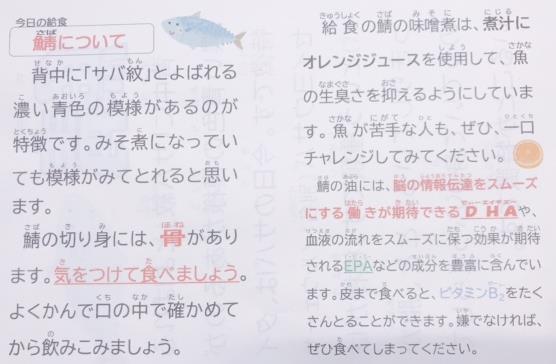 今日の給食
鯖について
背中に「サバ紋」とよばれる
濃い青色の模様があるのが
特徴です。みそ煮になってい
ても模様がみてとれると思い
ます。
鯖の切り身には、骨があり
ます。気をつけて食べましょう。
よくかんで口の中で確かめて
から飲みこみましょう。
給食の鯖の味噌煮は、煮汁に
オレンジジュースを使用して、魚
の生臭さを抑えるようにしていま
す。魚が苦手な人も、ぜひ、一口
チャレンジしてみてください。
鯖の油には、脳の情報伝達をスムーズ
にする働きが期待できるDHAや、
血液の流れをスムーズに保つ効果が期待
されるEPAなどの成分を豊富に含んでい
ます。皮まで食べると、ビタミンB₂をたく
さんとることができます。嫌でなければ、
ぜひ食べてしまってください。